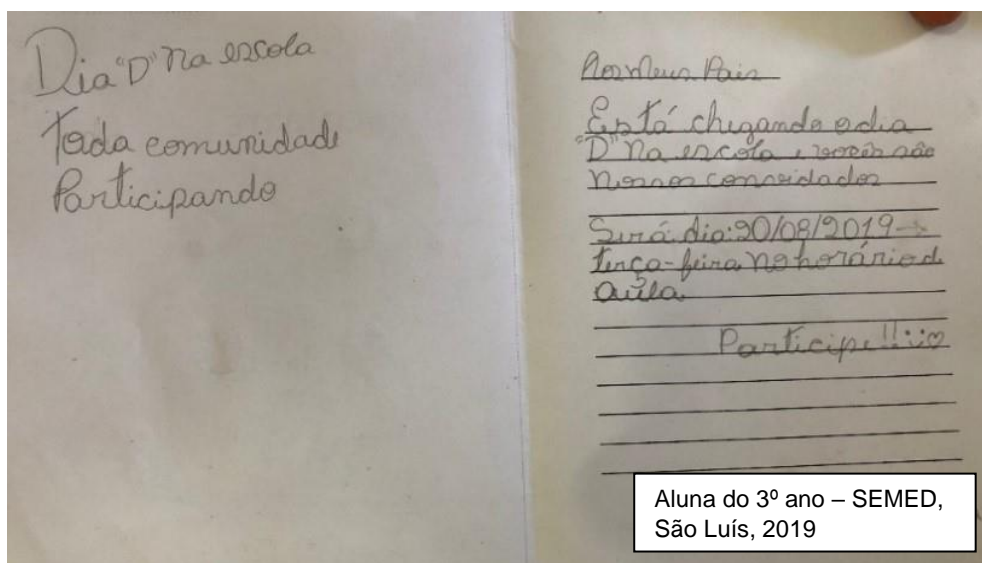 Dia "D" Na escola
Toda comunidade
Participando
Aos Meus Pais
Está chegando o dia
"D" Na escola e vocês são
Nossos convidados
Será dia: 20/08/2019 →
terça-feira No horário de
aula
Participe!!!
Aluna do 3º ano – SEMED,
São Luís, 2019